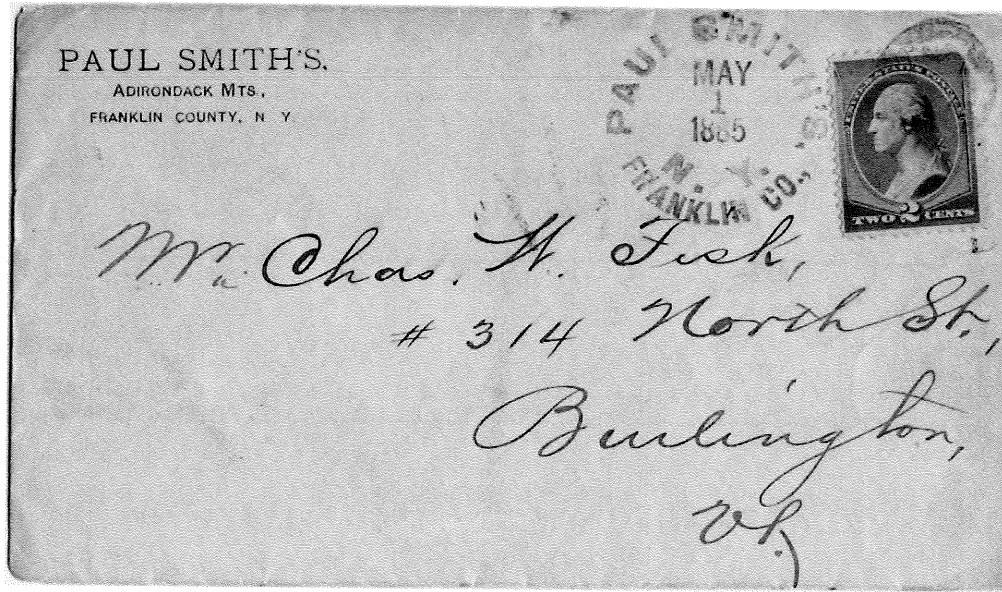 PAUL SMITH'S.
ADIRONDACK MTS.,
FRANKLIN COUNTY, N Y.
PAUL SMITH'S
MAY
1
1885
N. Y.
FRANKLIN CO.,
UNITED STATES POSTAGE
TWO 2 CENTS
Mr. Chas. H. Fisk,
# 314 North St.,
Burlington,
Vt.